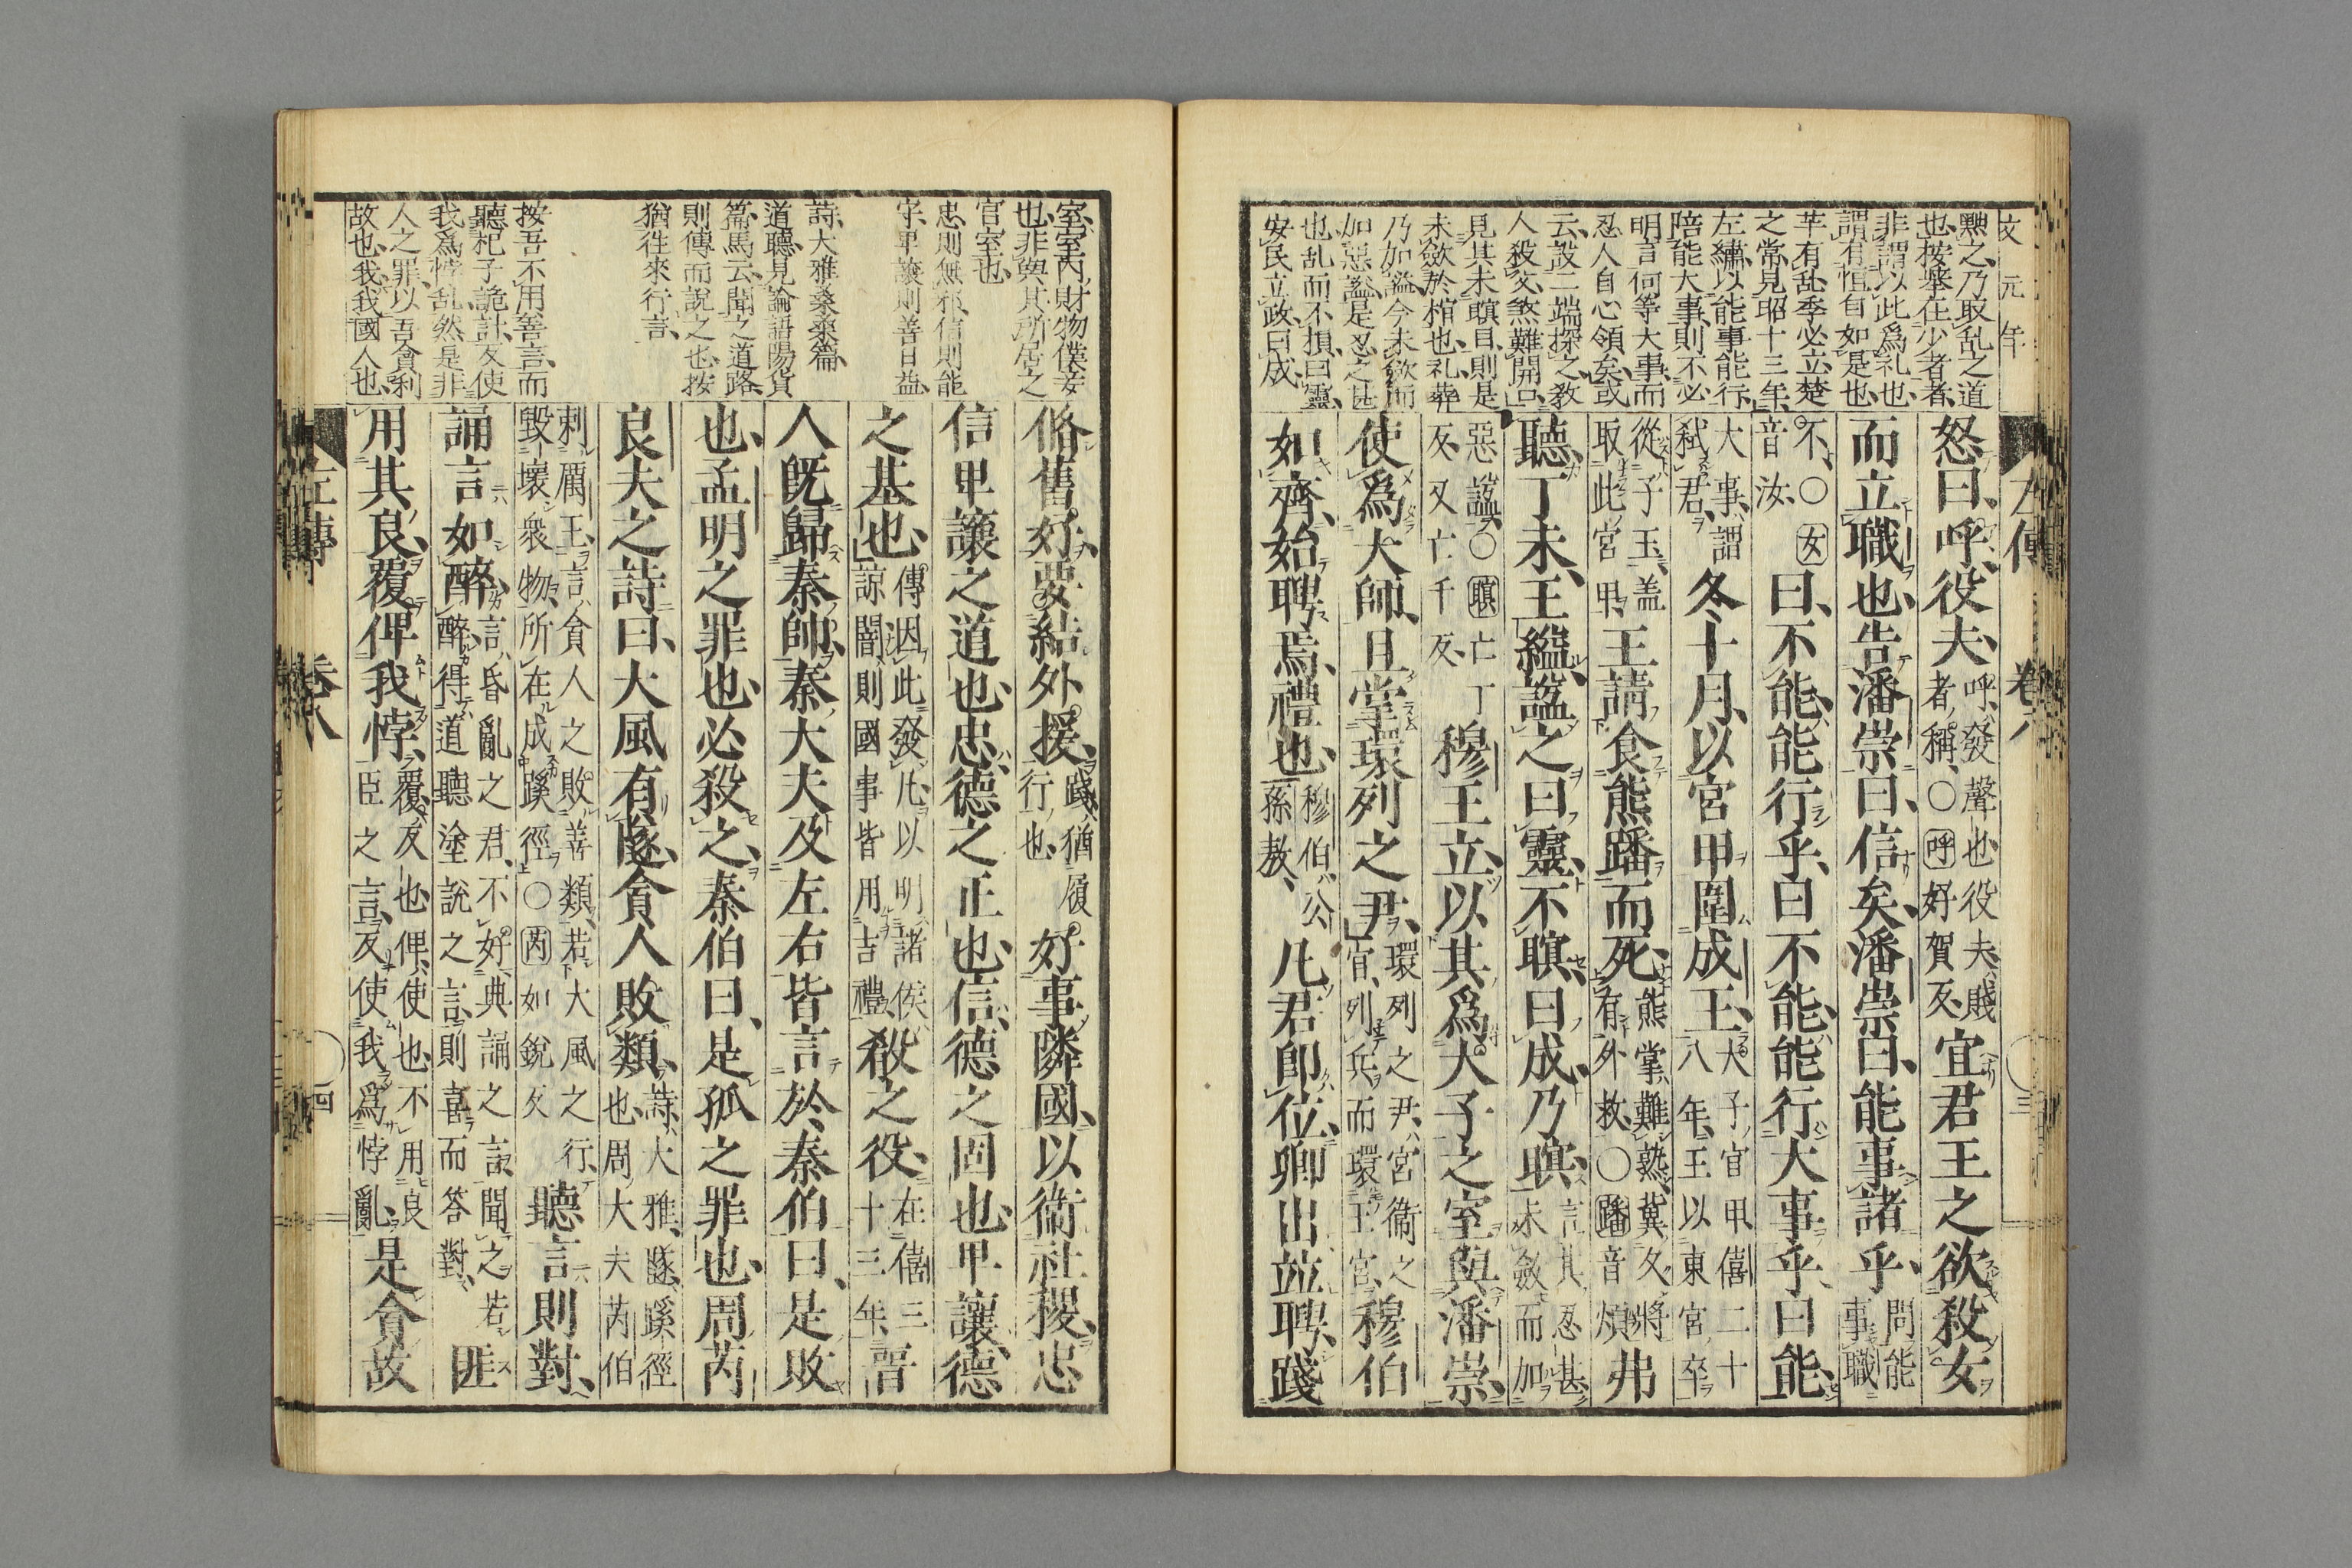 文元年
黙之乃取乱之道
也按舉在少者者
非謂以此爲礼也
謂有恒自如是也
芊有乱季必立楚
之常見昭十三年
左繡以能事能行
陪能大事則不必
明言何等大事而
忍人自心領矣或
云設二端探之教
人殺父煞難開口
見其未瞑目則是
未斂於棺也礼葬
乃加謚今未斂而
加惡謚是忍之甚
也乱而不損曰靈
安民立政曰成
左傳 卷八 三
怒曰呼役夫
呼發聲也役夫賤
者稱〇呼好賀反
宜君王之欲殺女
而立職也告潘崇曰信矣潘崇曰能事諸乎
問能
事職
不〇女
音汝
曰不能能行乎曰不能能行大事乎曰能
大事謂
弑君
冬十月以宮甲圍成王
大子宮甲僖二十
八年王以東宮卒
從子玉盖
取此宮甲
王請食熊蹯而死
熊掌難熟冀久將
有外救〇蹯音煩
弗
聽丁未王縊謚之曰靈不瞑曰成乃瞑
言其忍甚
未斂而加
惡謚〇瞑亡丁
反又亡千反
穆王立以其爲大子之室與潘崇
使爲大師且掌環列之尹
環列之尹宮衞之
官列兵而環王宮
穆伯
如齊始聘焉禮也
穆伯公
孫敖
凡君卽位卿出竝聘踐
室室內財物僕妾
也非與其所居之
官室也
忠則無邪信則能
守卑讓則善日益
詩大雅桑桑篇
道聽見論語陽貨
篇馬云聞之道路
則傳而說之也按
猶往來行言
按吾不用善言而
聽杞子詭計反使
我爲悖乱然是非
人之罪以吾貪利
故也我我國人也
脩舊好要結外援
踐猶履
行也
好事隣國以衞社稷忠
信卑讓之道也忠德之正也信德之固也卑讓德
之基也
傳因此發凡以明諸侯
諒闇則國事皆用吉禮
殽之役
在僖三
十三年
晉
人旣歸秦帥秦大夫及左右皆言於秦伯曰是敗
也孟明之罪也必殺之秦伯曰是孤之罪也周芮
良夫之詩曰大風有隧貪人敗類
詩大雅隧蹊徑
也周大夫芮伯
刺厲王言貪人之敗善類若大風之行
毀壞衆物所在成蹊徑〇芮如銳反
聽言則對
誦言如醉
言昏亂之君不好典誦之言聞之若
醉得道聽塗說之言則喜而答對
匪
用其良覆俾我悖
覆反也俾使也不用良
臣之言反使我爲悖亂
是貪故
左傳 卷八 四